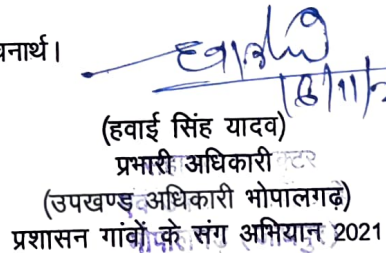 चनार्थ।
(हवाई सिंह यादव)
प्रभारी अधिकारी
(उपखण्ड अधिकारी भोपालगढ़)
प्रशासन गांवों के संग अभियान 2021